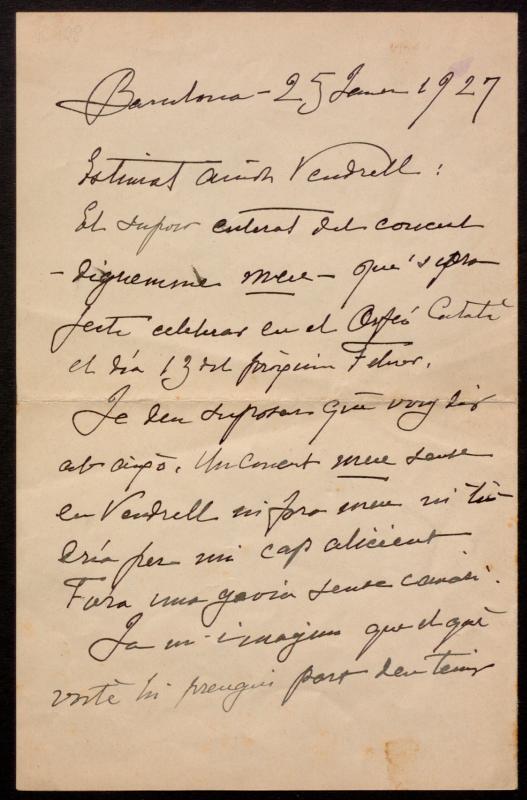 Barcelona - 25 Janer 1927
Estimat amich Vendrell:
El suposo enterat del concert
- diguemne meu - que's
celebrar en el Orfeó Catalá
el día 13 del próxim Febrer.
Ja deu suposar que vuy dir
ab aixó. Un concert meu sense
en Vendrell ni fora meu ni tin-
dría per mi cap alicient
Fora una gavia sense canari.
Ja m'imagino que el que
vosté hi prengui part deu tenir